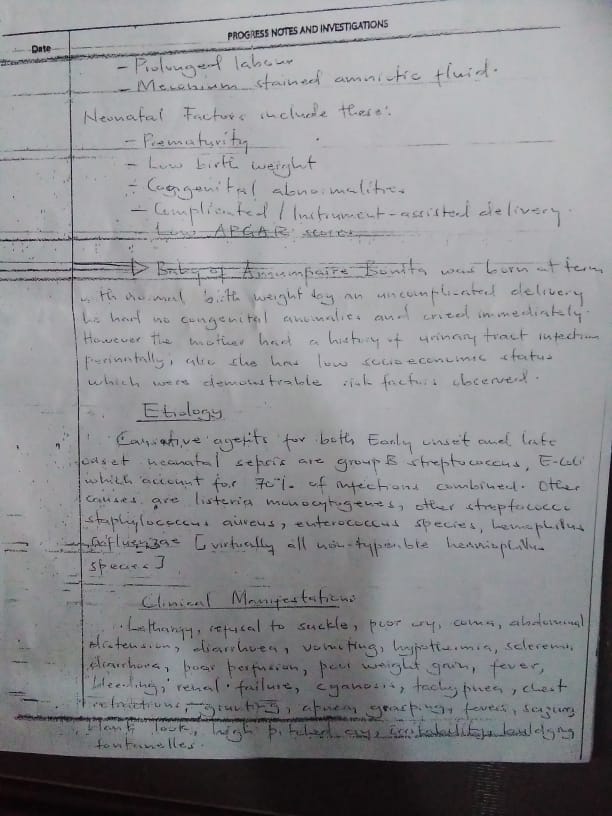 PROGRESS NOTES AND INVESTIGATIONS
Date
- Prolonged labour
- Meconium stained amniotic fluid.
Neonatal Factors include these:
- Prematurity
- Low birth weight
- Congenital abnormalities
- Complicated / Instrument-assisted delivery.
- Low APGAR scores
Baby of Bonita was born at term
with normal birth weight by an uncomplicated delivery
he had no congenital anomalies and cried immediately.
However the mother had a history of urinary tract infection
perinatally, also she has low socioeconomic status
which were demonstrable risk factors observed.
Etiology
Causative agents for both Early onset and late
onset neonatal sepsis are group B streptococcus, E-coli
which account for 70% of infections combined. Other
causes are listeria monocytogenes, other streptococci
staphylococcus aureus, enterococcus species, hemophilus
influenzae [virtually all non-typenble hemophilus
species]
Clinical Manifestations
Lethargy, refusal to suckle, poor cry, coma, abdominal
distension, diarrhoea, vomiting, hypothermia, sclerema,
diarrhoea, poor perfusion, poor weight gain, fever,
bleeding, renal failure, cyanosis, tachypnea, chest
retractions, grunting, apnea, grasping, fevers, seizures
blank look, high pitched cry, excitability, buldging
fontanelles.